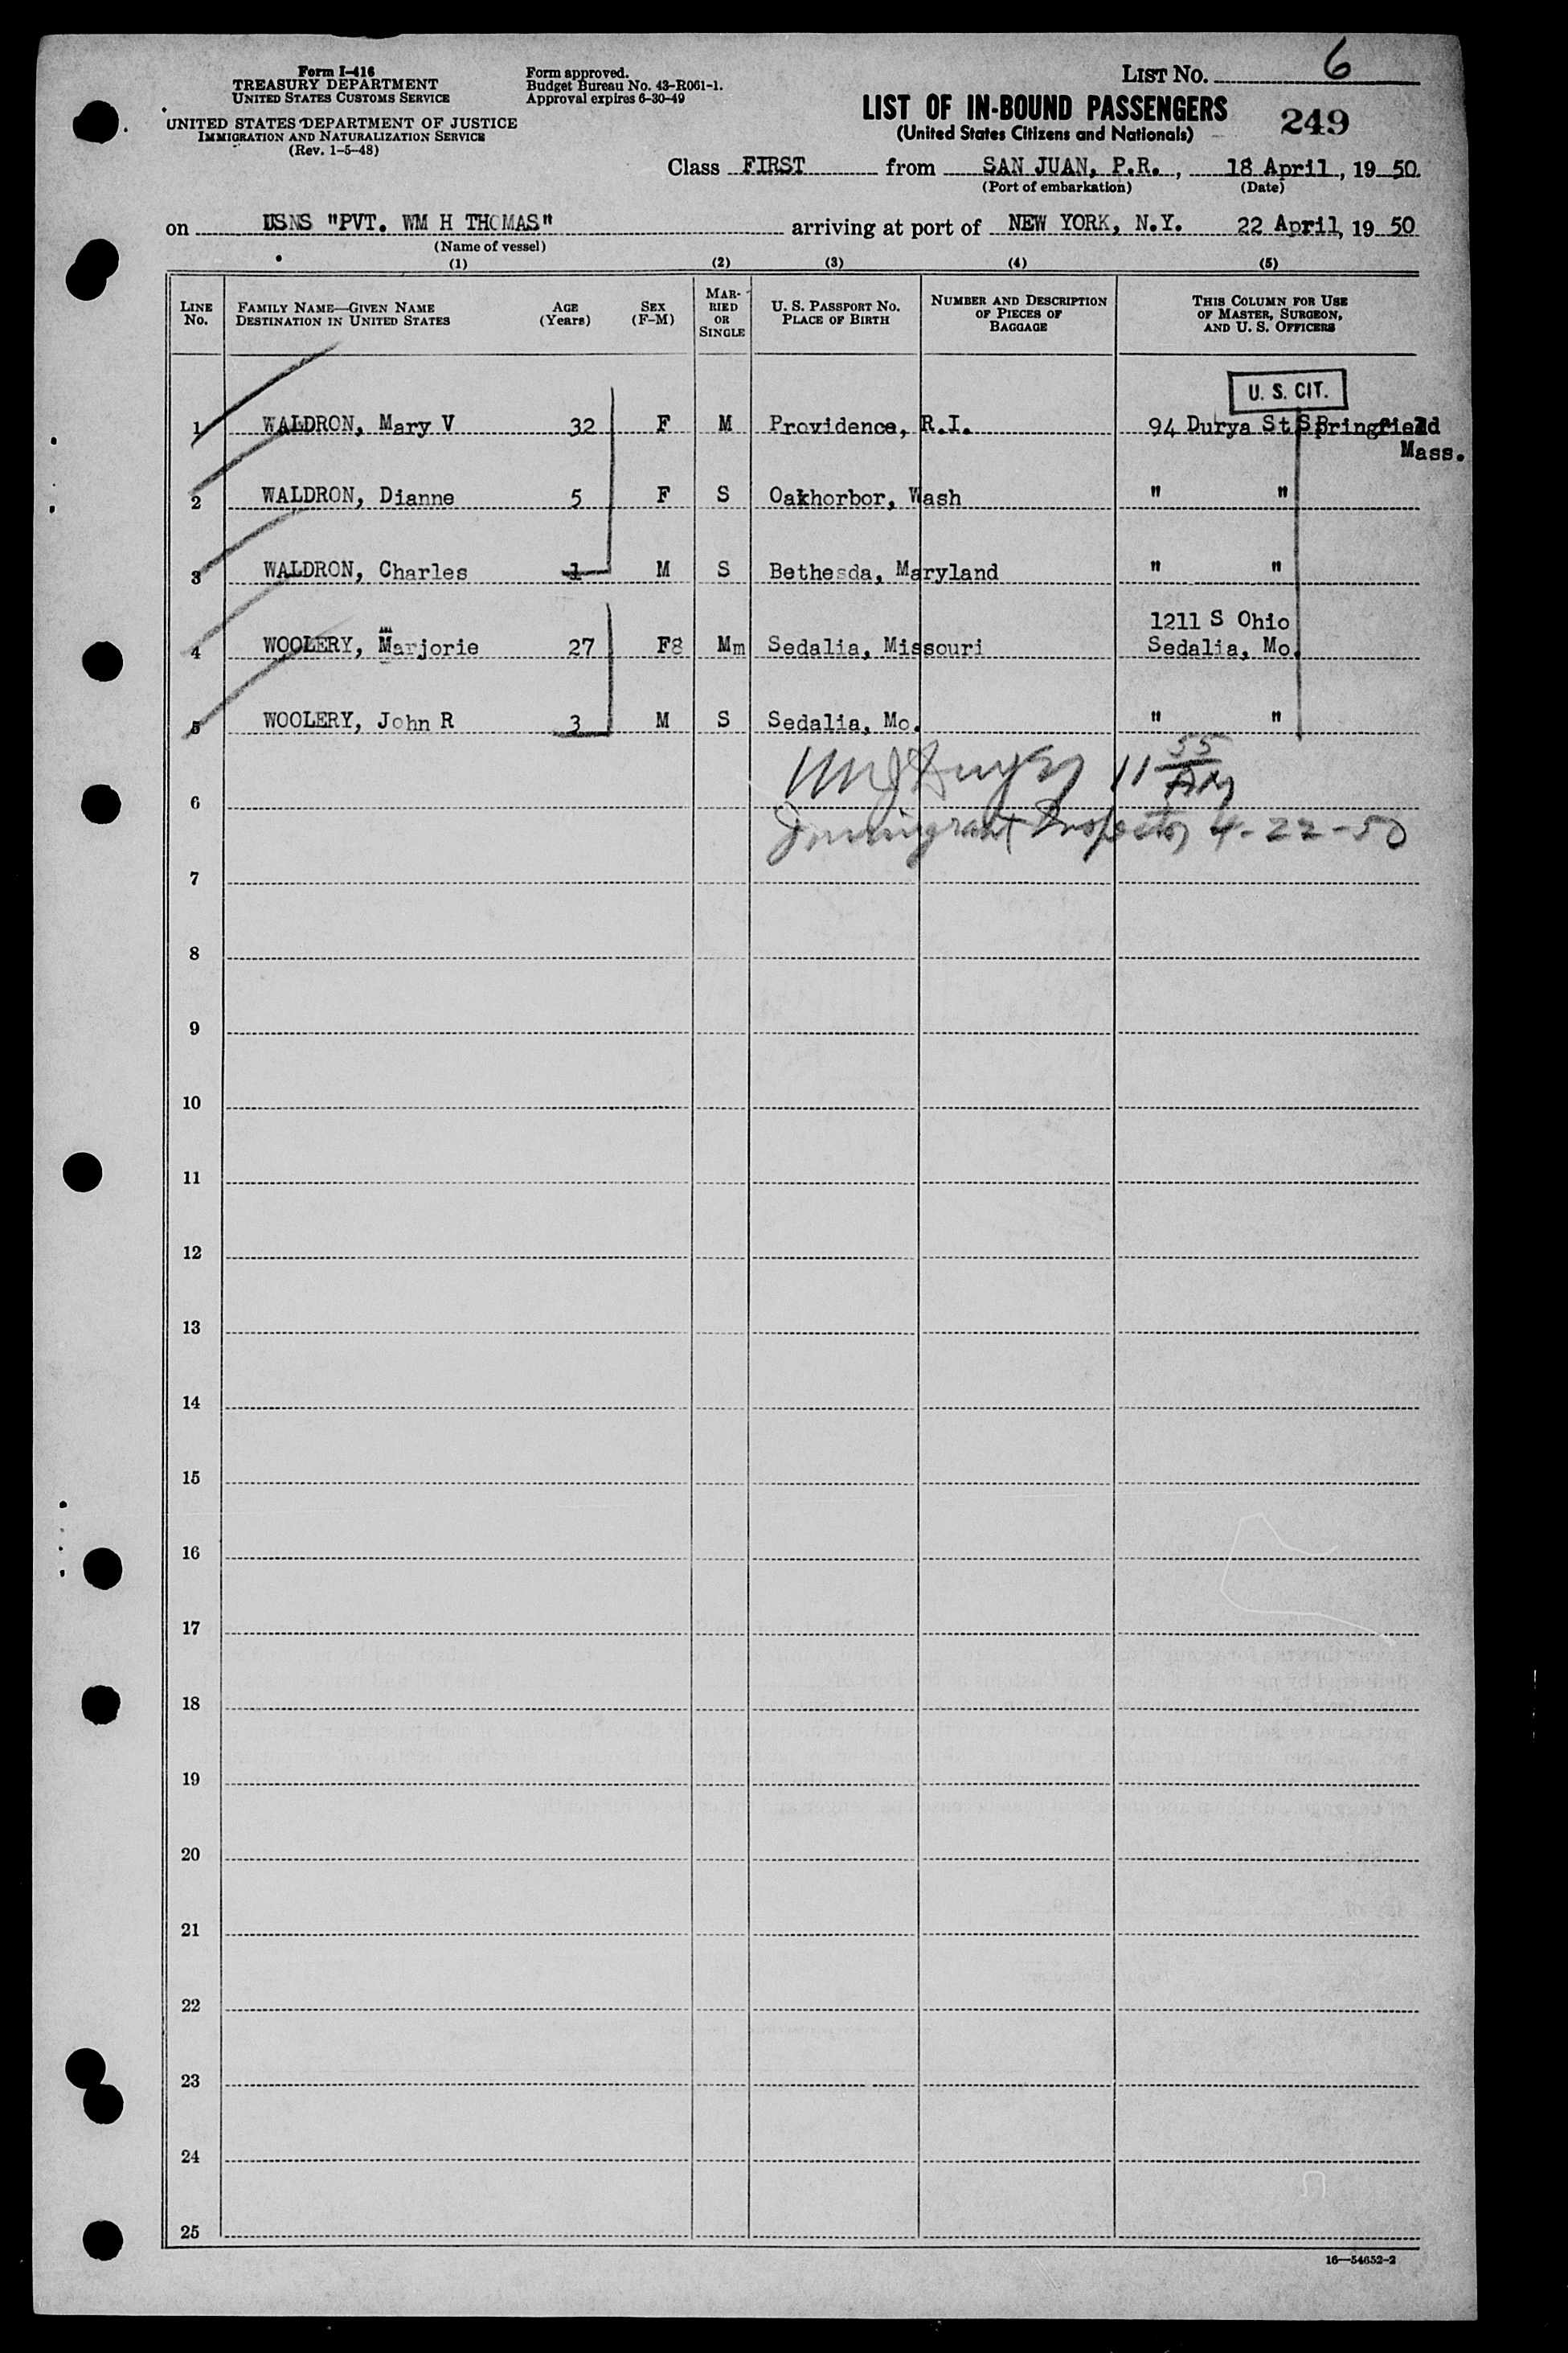 Form I-416
TREASURY DEPARTMENT
UNITED STATES CUSTOMS SERVICE
UNITED STATES DEPARTMENT OF JUSTICE
IMMIGRATION AND NATURALIZATION SERVICE
(Rev. 1-5-48)
Form approved.
Budget Bureau No. 43-R061-1.
Approval expires 6-30-49
LIST No. 6
LIST OF IN-BOUND PASSENGERS
(United States Citizens and Nationals)
249
Class FIRST from SAN JUAN, P.R., 18 April, 19 50
(Port of embarkation) (Date)
on USNS "PVT. WM H THOMAS" arriving at port of NEW YORK, N.Y. 22 April, 19 50
(Name of vessel)
(1) (2) (3) (4) (5)
LINE No. FAMILY NAME—GIVEN NAME DESTINATION IN UNITED STATES AGE (Years) SEX (F-M) MARRIED OR SINGLE U. S. PASSPORT NO. PLACE OF BIRTH NUMBER AND DESCRIPTION OF PIECES OF BAGGAGE THIS COLUMN FOR USE OF MASTER, SURGEON, AND U. S. OFFICERS
U. S. CIT.
1 WALDRON, Mary V 32 F M Providence, R.I. 94 Durya St Springfield
Mass.
2 WALDRON, Dianne 5 F S Oakhorbor, Wash " "
3 WALDRON, Charles 1 M S Bethesda, Maryland " "
1211 S Ohio
4 WOOLERY, Marjorie 27 F8 Mm Sedalia, Missouri Sedalia, Mo.
5 WOOLERY, John R 3 M S Sedalia, Mo. " "
11 55 AM
6
Immigrant Inspector 4-22-50
7
8
9
10
11
12
13
14
15
16
17
18
19
20
21
22
23
24
25
16—54652-2